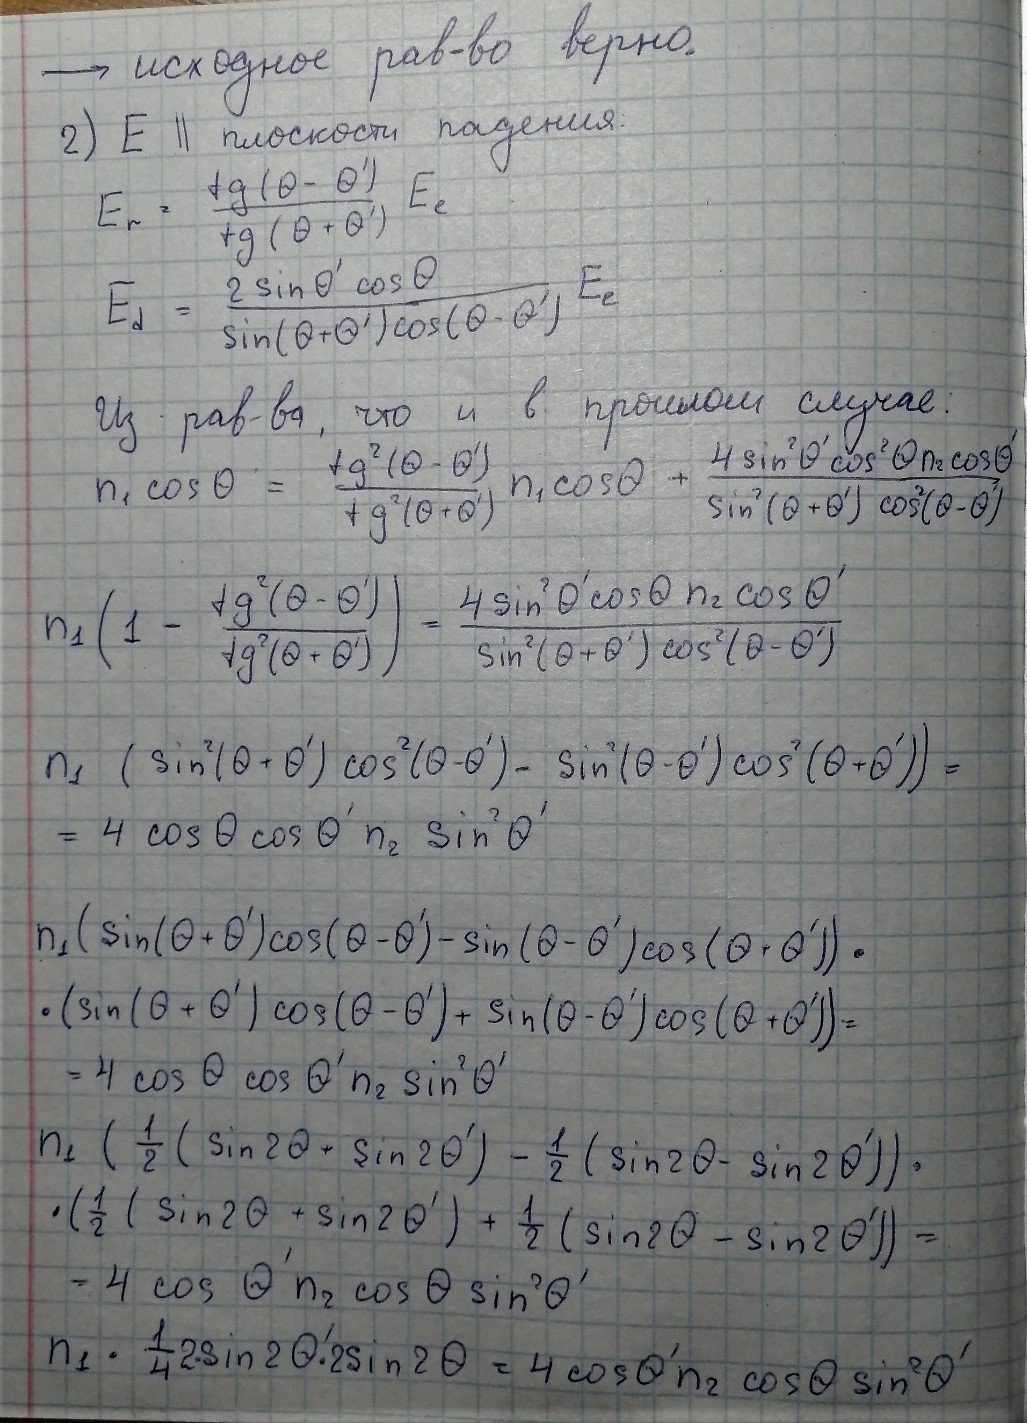 → исходное рав-во верно.
2) E || плоскости падения:
E_r = tg(θ - θ')/tg(θ + θ') E_e
E_d = 2 sinθ' cosθ/sin(θ+θ')cos(θ-θ') E_e
Из рав-ва, что и в прошлом случае:
n₁ cosθ = tg²(θ-θ')/tg²(θ+θ') n₁cosθ + 4 sin²θ' cos²θ n₂ cosθ'/sin²(θ+θ') cos²(θ-θ')
n₁(1 - tg²(θ-θ')/tg²(θ+θ')) = 4 sin²θ' cosθ n₂ cosθ'/sin²(θ+θ') cos²(θ-θ')
n₁ (sin²(θ+θ') cos²(θ-θ') - sin²(θ-θ') cos²(θ+θ')) =
= 4 cosθ cosθ' n₂ sin²θ'
n₁(sin(θ+θ')cos(θ-θ') - sin(θ-θ')cos(θ+θ')) ·
·(sin(θ+θ') cos(θ-θ') + sin(θ-θ')cos(θ+θ')) =
= 4 cosθ cosθ' n₂ sin²θ'
n₁ (1/2 (sin2θ + sin2θ') - 1/2 (sin2θ - sin2θ')) ·
·(1/2 (sin2θ + sin2θ') + 1/2 (sin2θ - sin2θ')) =
= 4 cos θ' n₂ cosθ sin²θ'
n₁ · 1/4 2·sin2θ'·2sin2θ = 4cosθ'n₂ cosθ sin²θ'